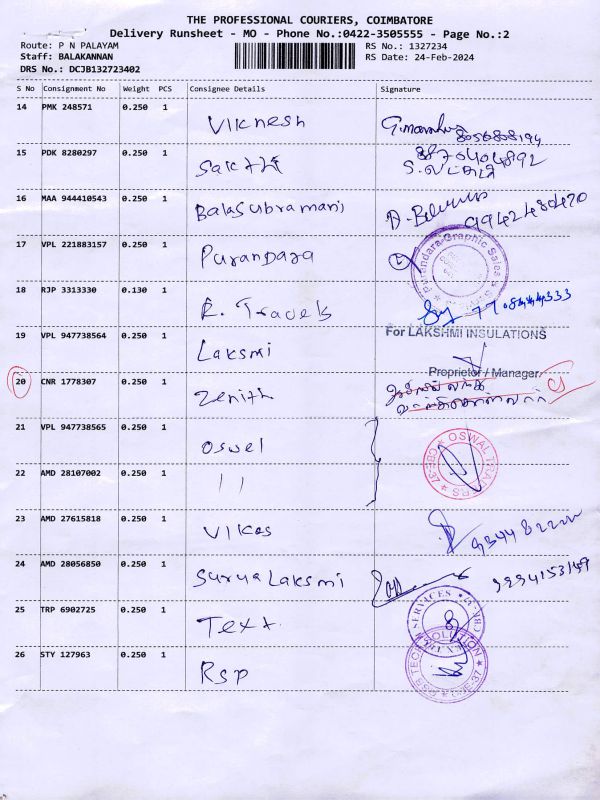 THE PROFESSIONAL COURIERS, COIMBATORE
Delivery Runsheet - MO - Phone No.:0422-3505555 - Page No.:2
Route: P N PALAYAM RS No.: 1327234
Staff: BALAKANNAN RS Date: 24-Feb-2024
DRS No.: DCJB132723402
S No Consignment No Weight PCS Consignee Details Signature
14 PMK 248571 0.250 1 Viknesh 8056808194
15 PDK 8280297 0.250 1 Sakthi 8870404892
16 MAA 944410543 0.250 1 Balasubramani 9942480470
17 VPL 221883157 0.250 1 Purandara Purendara Graphic Sales
18 RJP 3313330 0.130 1 R. Travels
19 VPL 947738564 0.250 1 Laksmi For LAKSHMI INSULATIONS
Proprietor / Manager
20 CNR 1778307 0.250 1 Zenith
21 VPL 947738565 0.250 1 Oswel OSWAL TRADERS CBE-37
22 AMD 28107002 0.250 1 11
23 AMD 27615818 0.250 1 Vikas
24 AMD 28056850 0.250 1 Surya Laksmi 9994153159
25 TRP 6902725 0.250 1 Text. SERVICES
26 STY 127963 0.250 1 Rsp